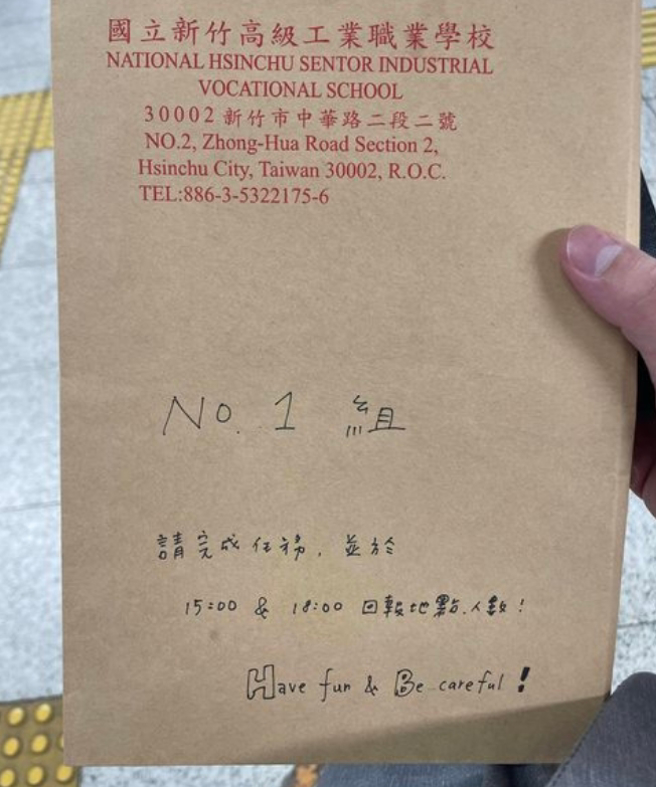 國立新竹高級工業職業學校
NATIONAL HSINCHU SENTOR INDUSTRIAL
VOCATIONAL SCHOOL
30002 新竹市中華路二段二號
NO.2, Zhong-Hua Road Section 2,
Hsinchu City, Taiwan 30002, R.O.C.
TEL:886-3-5322175-6
No. 1 組
請完成任務，並於
15:00 & 18:00 回報地點、人數！
Have fun & Be careful！